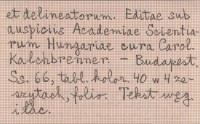 et delineatorum. Editae sub
auspiciis Academiae Scientia-
rum Hungariae cura Carol.
Kalchbrenner. – Budapest.
Ss. 66, tabl. kolor. 40 w 4 ze-
szytach, folio. Tekst węg.
i łac.